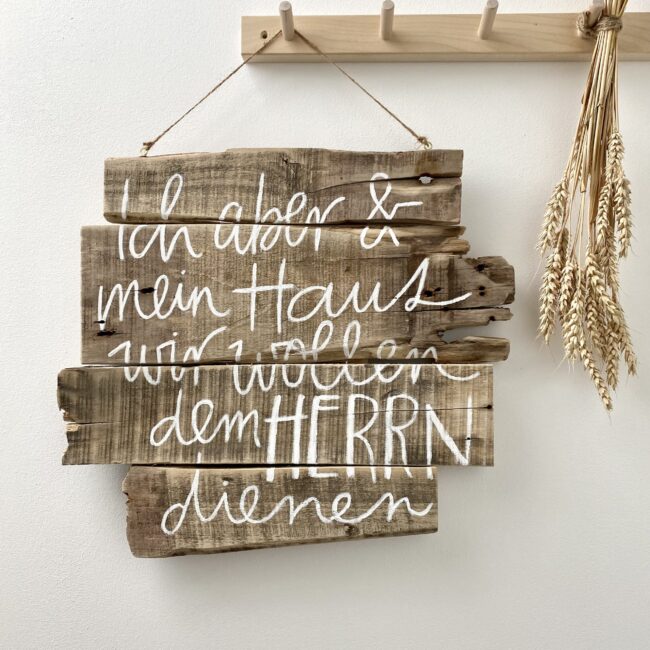 Ich aber &
mein Haus
wir wollen
dem HERRN
dienen